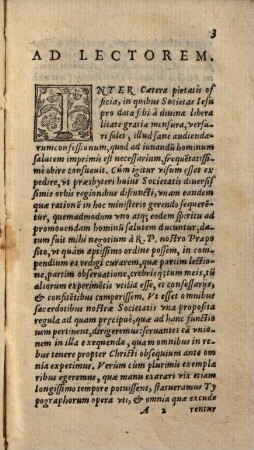 3
AD LECTOREM.
INTER Cætera pietatis of
ficia, in quibus Societas Iesu
pro data sibi à diuina libera
litate gratiæ mensura, versa
ri solet, illud sanè audienda
rum confessionum, quod ad iuuandũ hominum
salutem imprimis est necessarium, frequẽtatis
simè obire consueuit. Cum igitur visum esset ex
pedire, vt præsbyteri huius Societatis diuersis
simis orbis regionibus disfuncti, vnam eandem
quæ rationẽ in hoc ministerio gerendo sequerẽ
tur, quemadmodum vno atq; eodem spiritu ad
promouendam hominũ salutem ducuntur, da
tum fuit mihi negotium à R. P. nostro Præpo
sito, vt quàm aptissimo ordine possem, in com
pendium ea redigi curarem, quæ partim lectio
ne, partim obseruatione, crebrisq́; tum meis, tũ
aliorum experimẽtis vtilia esse, et confessarijs,
& confitẽtibus comperissem. Vt esset omnibus
sacerdotibus nostræ Societatis vna proposita
regula ad quam præcipuè, quæ ad hanc functio
nem pertinent, dirigeremus: seruantes eã vnio
nem in illa exequenda, quam omnibus in re
bus tenere propter Christi obsequium ante om
nia expetimus. Verùm cùm plurimis exempla
ribus egeremus, quæ manu exarari vix etiam
longissimo tempore potuissent, statueramus Ty
pographorum opera vti, & omnia quæ excude
A 2 rentur